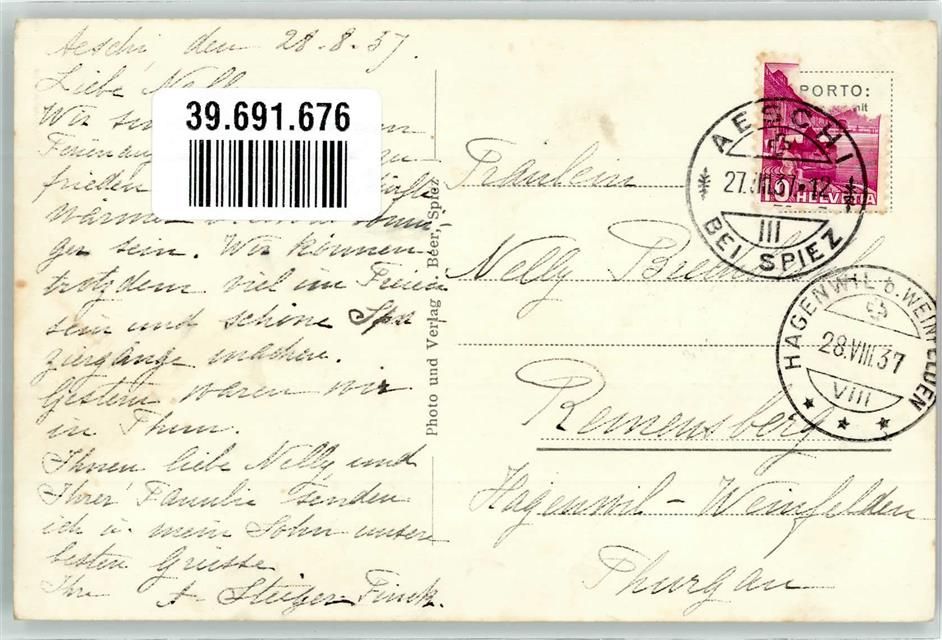 Aeschi, den 28.8.37.
Liebe Nelly
Wir
Ferien
frieden
wärmer
ger sein. Wir können
trotzdem viel im Freien
sein und schöne Spa
ziergänge machen.
Gestern waren wir
in Thun.
Ihnen liebe Nelly und
Ihrer Familie senden
ich u. mein Sohn unser
besten Grüsse
Ihre A. Steiger Finck.
39.691.676
Photo und Verlag Beer, Spiez
PORTO:
mit
10 HELVETIA
AESCHI
27.VIII.37-12
III
BEI SPIEZ
HAGENWIL b. WEINFELDEN
28.VIII.37
VIII
Fräulein
Nelly
Remensberg
Hagenwil - Weinfelden
Thurgau